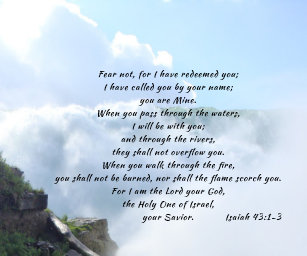 Fear not, for I have redeemed you;
I have called you by your name;
you are Mine.
When you pass through the waters,
I will be with you;
and through the rivers,
they shall not overflow you.
When you walk through the fire,
you shall not be burned, nor shall the flame scorch you.
For I am the Lord your God,
the Holy One of Israel,
your Savior. Isaiah 43:1-3